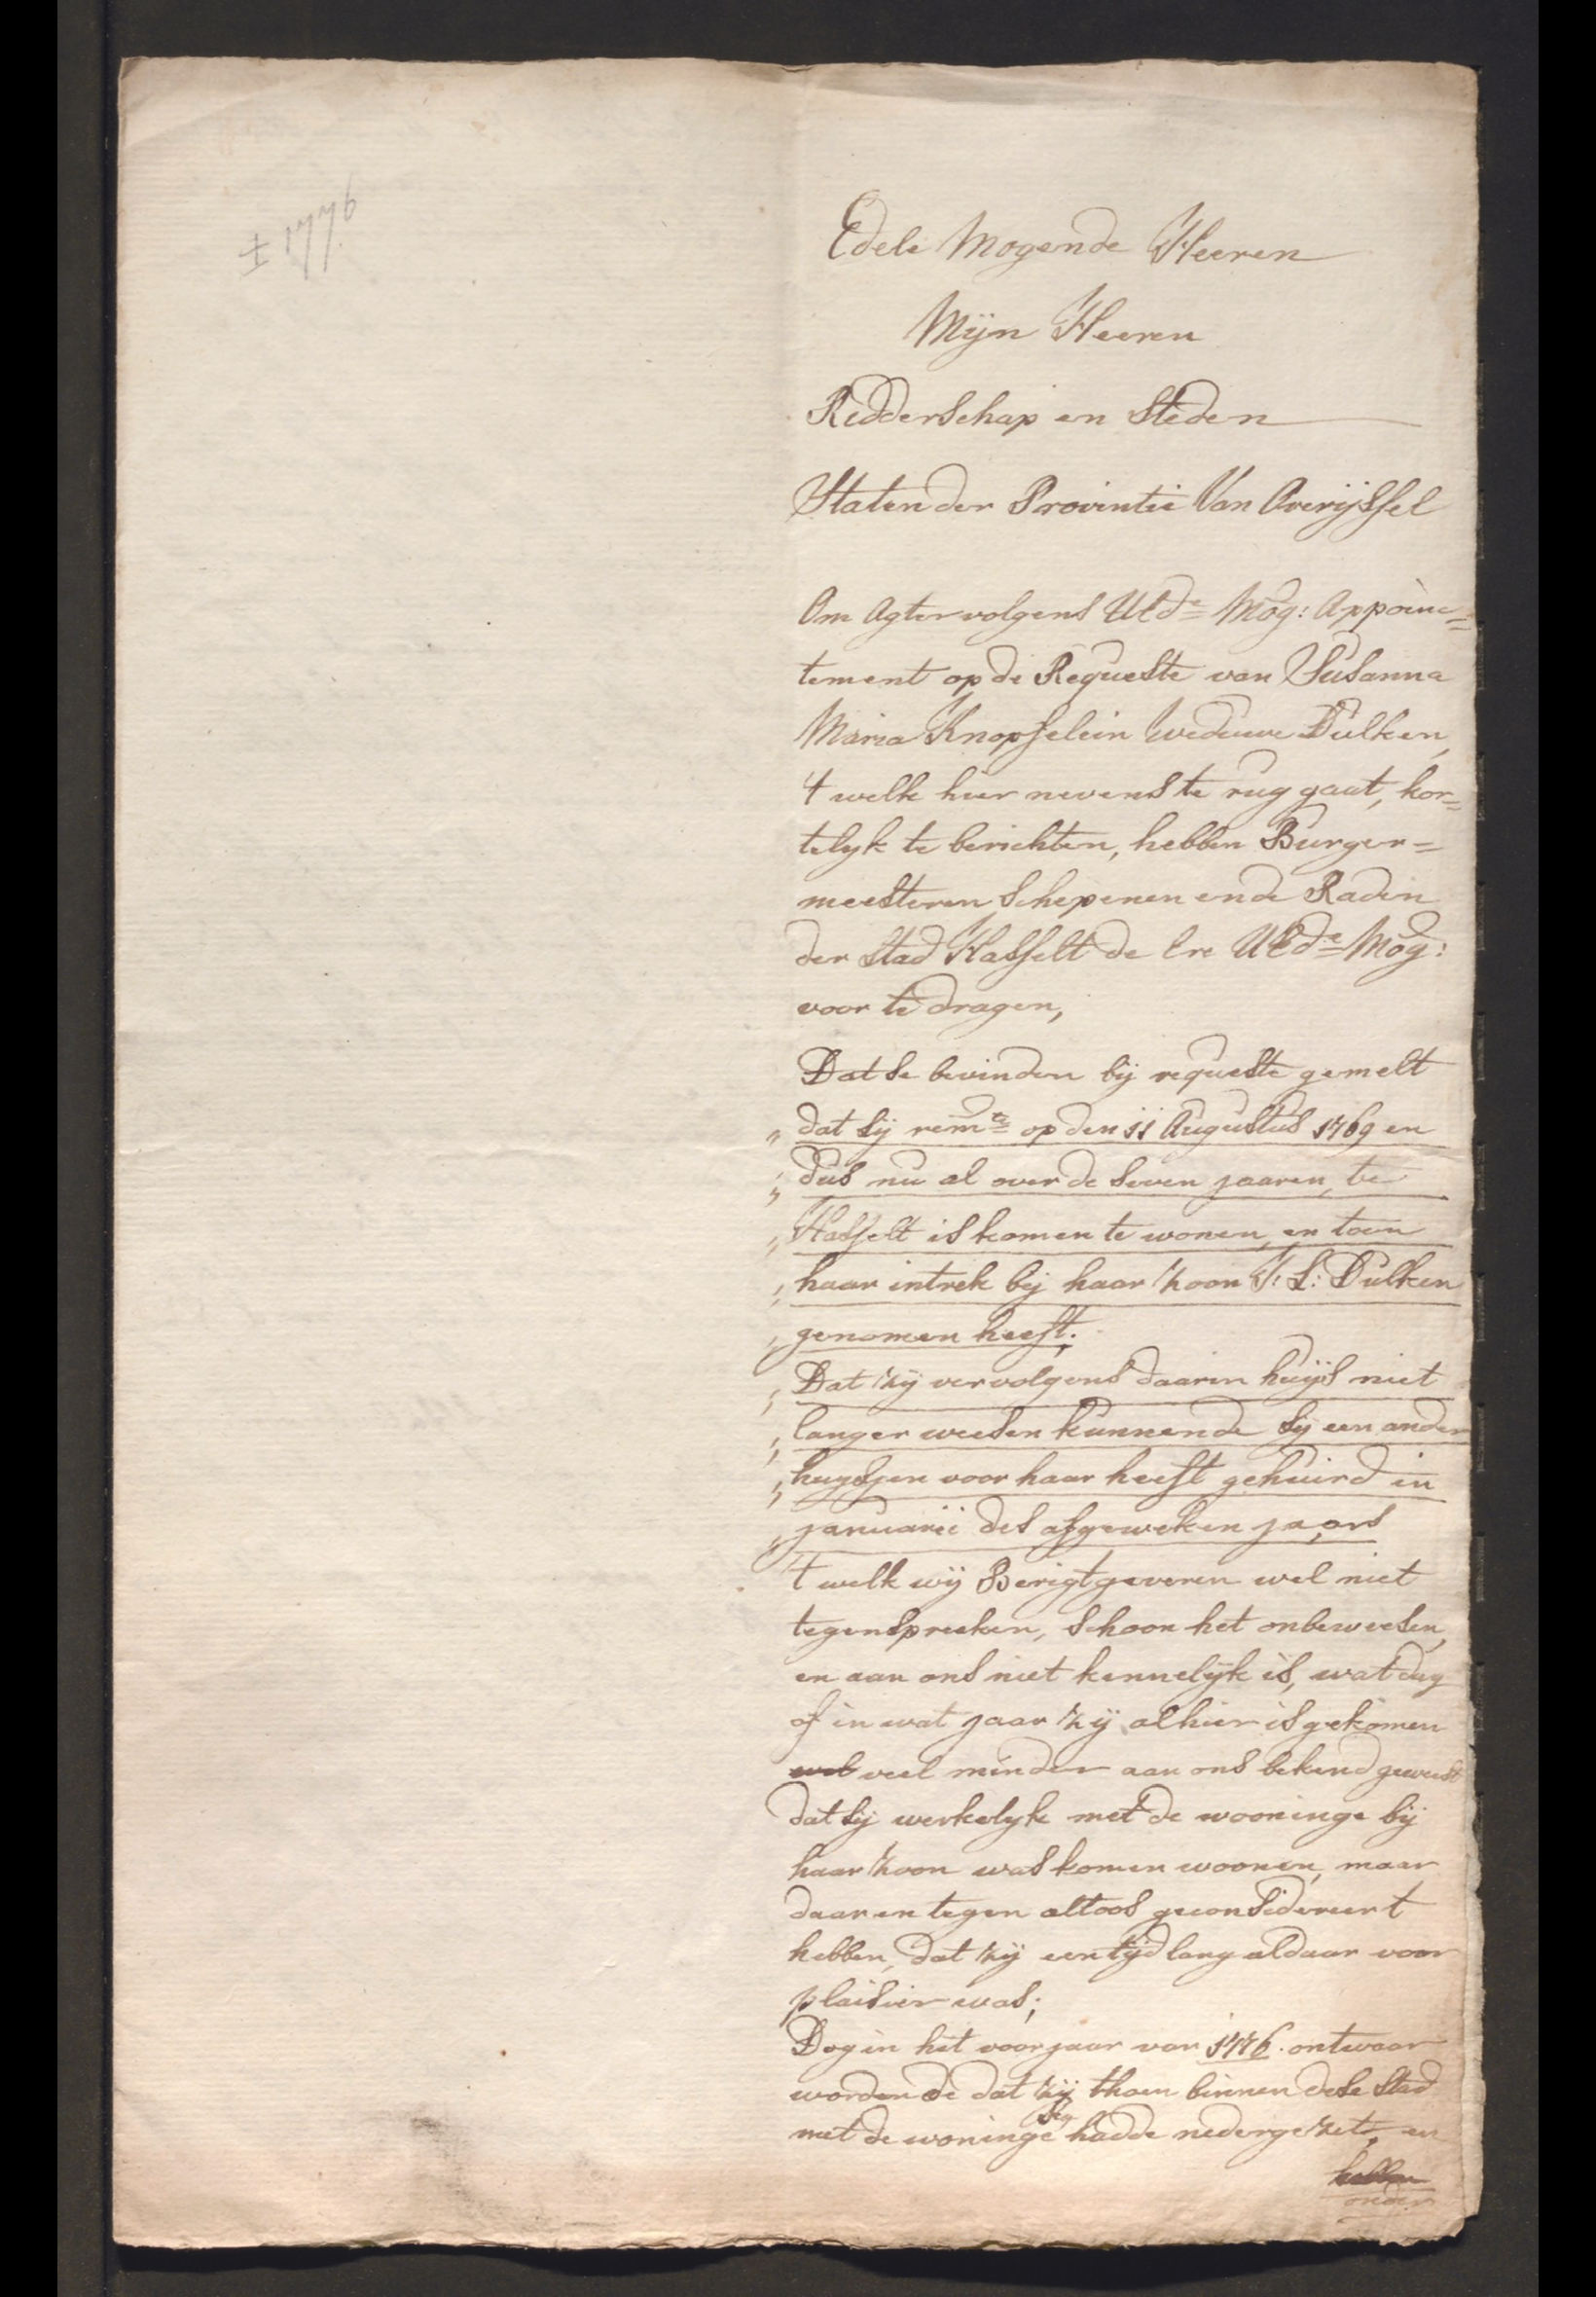 ± 1776
Edele Mogende Heeren
Mijn Heeren
Ridderschap en Steden
Staten der Provintie Van Overijssel
Om Agtervolgens UEde Mog: Appoinc=
tement op de Requeste van Susanna
Maria Knopfelein weduwe Dulken,
't welk hier nevens te rug gaat, kor=
telyk te berichten, hebben Burger=
meesteren Schepenen ende Raden
der Stad Hasselt de Ere UEde Mog:
voor te dragen,
Dat se bevinden bij requeste gemelt
„ dat sij remte op den 11 Augustus 1769 en
„ dus nu al over de seven jaaren, te
„ Hasselt is komen te wonen, en toen
„ haar intrek bij haar Zoon J: L: Dulken
„ genomen heeft;
„ Dat zij vervolgens daar in huijs niet
„ langer weesen kunnende sij een ander
„ huysjen voor haar heeft gehuird in
„ januarii des afgeweken jaars
't welk wij Berigtgeveren wel niet
tegenspreeken, schoon het onbeweesen,
en aan ons niet kennelijk is, wat dag
of in wat jaar zij alhier is gekomen
wel veel minder aan ons bekend geweest
dat sij werkelyk met de wooninge bij
haar Zoon was komen woonen, maar
daar en tegen altoos geconsidereert
hebben, dat zij een tijd lang aldaar voor
plaisier was;
Dog in het voorjaar van 1776. ontwaar
wordende dat zij thoen binnen dese Stad
sig
met de woninge hadde nedergezet, en
hebben
onder